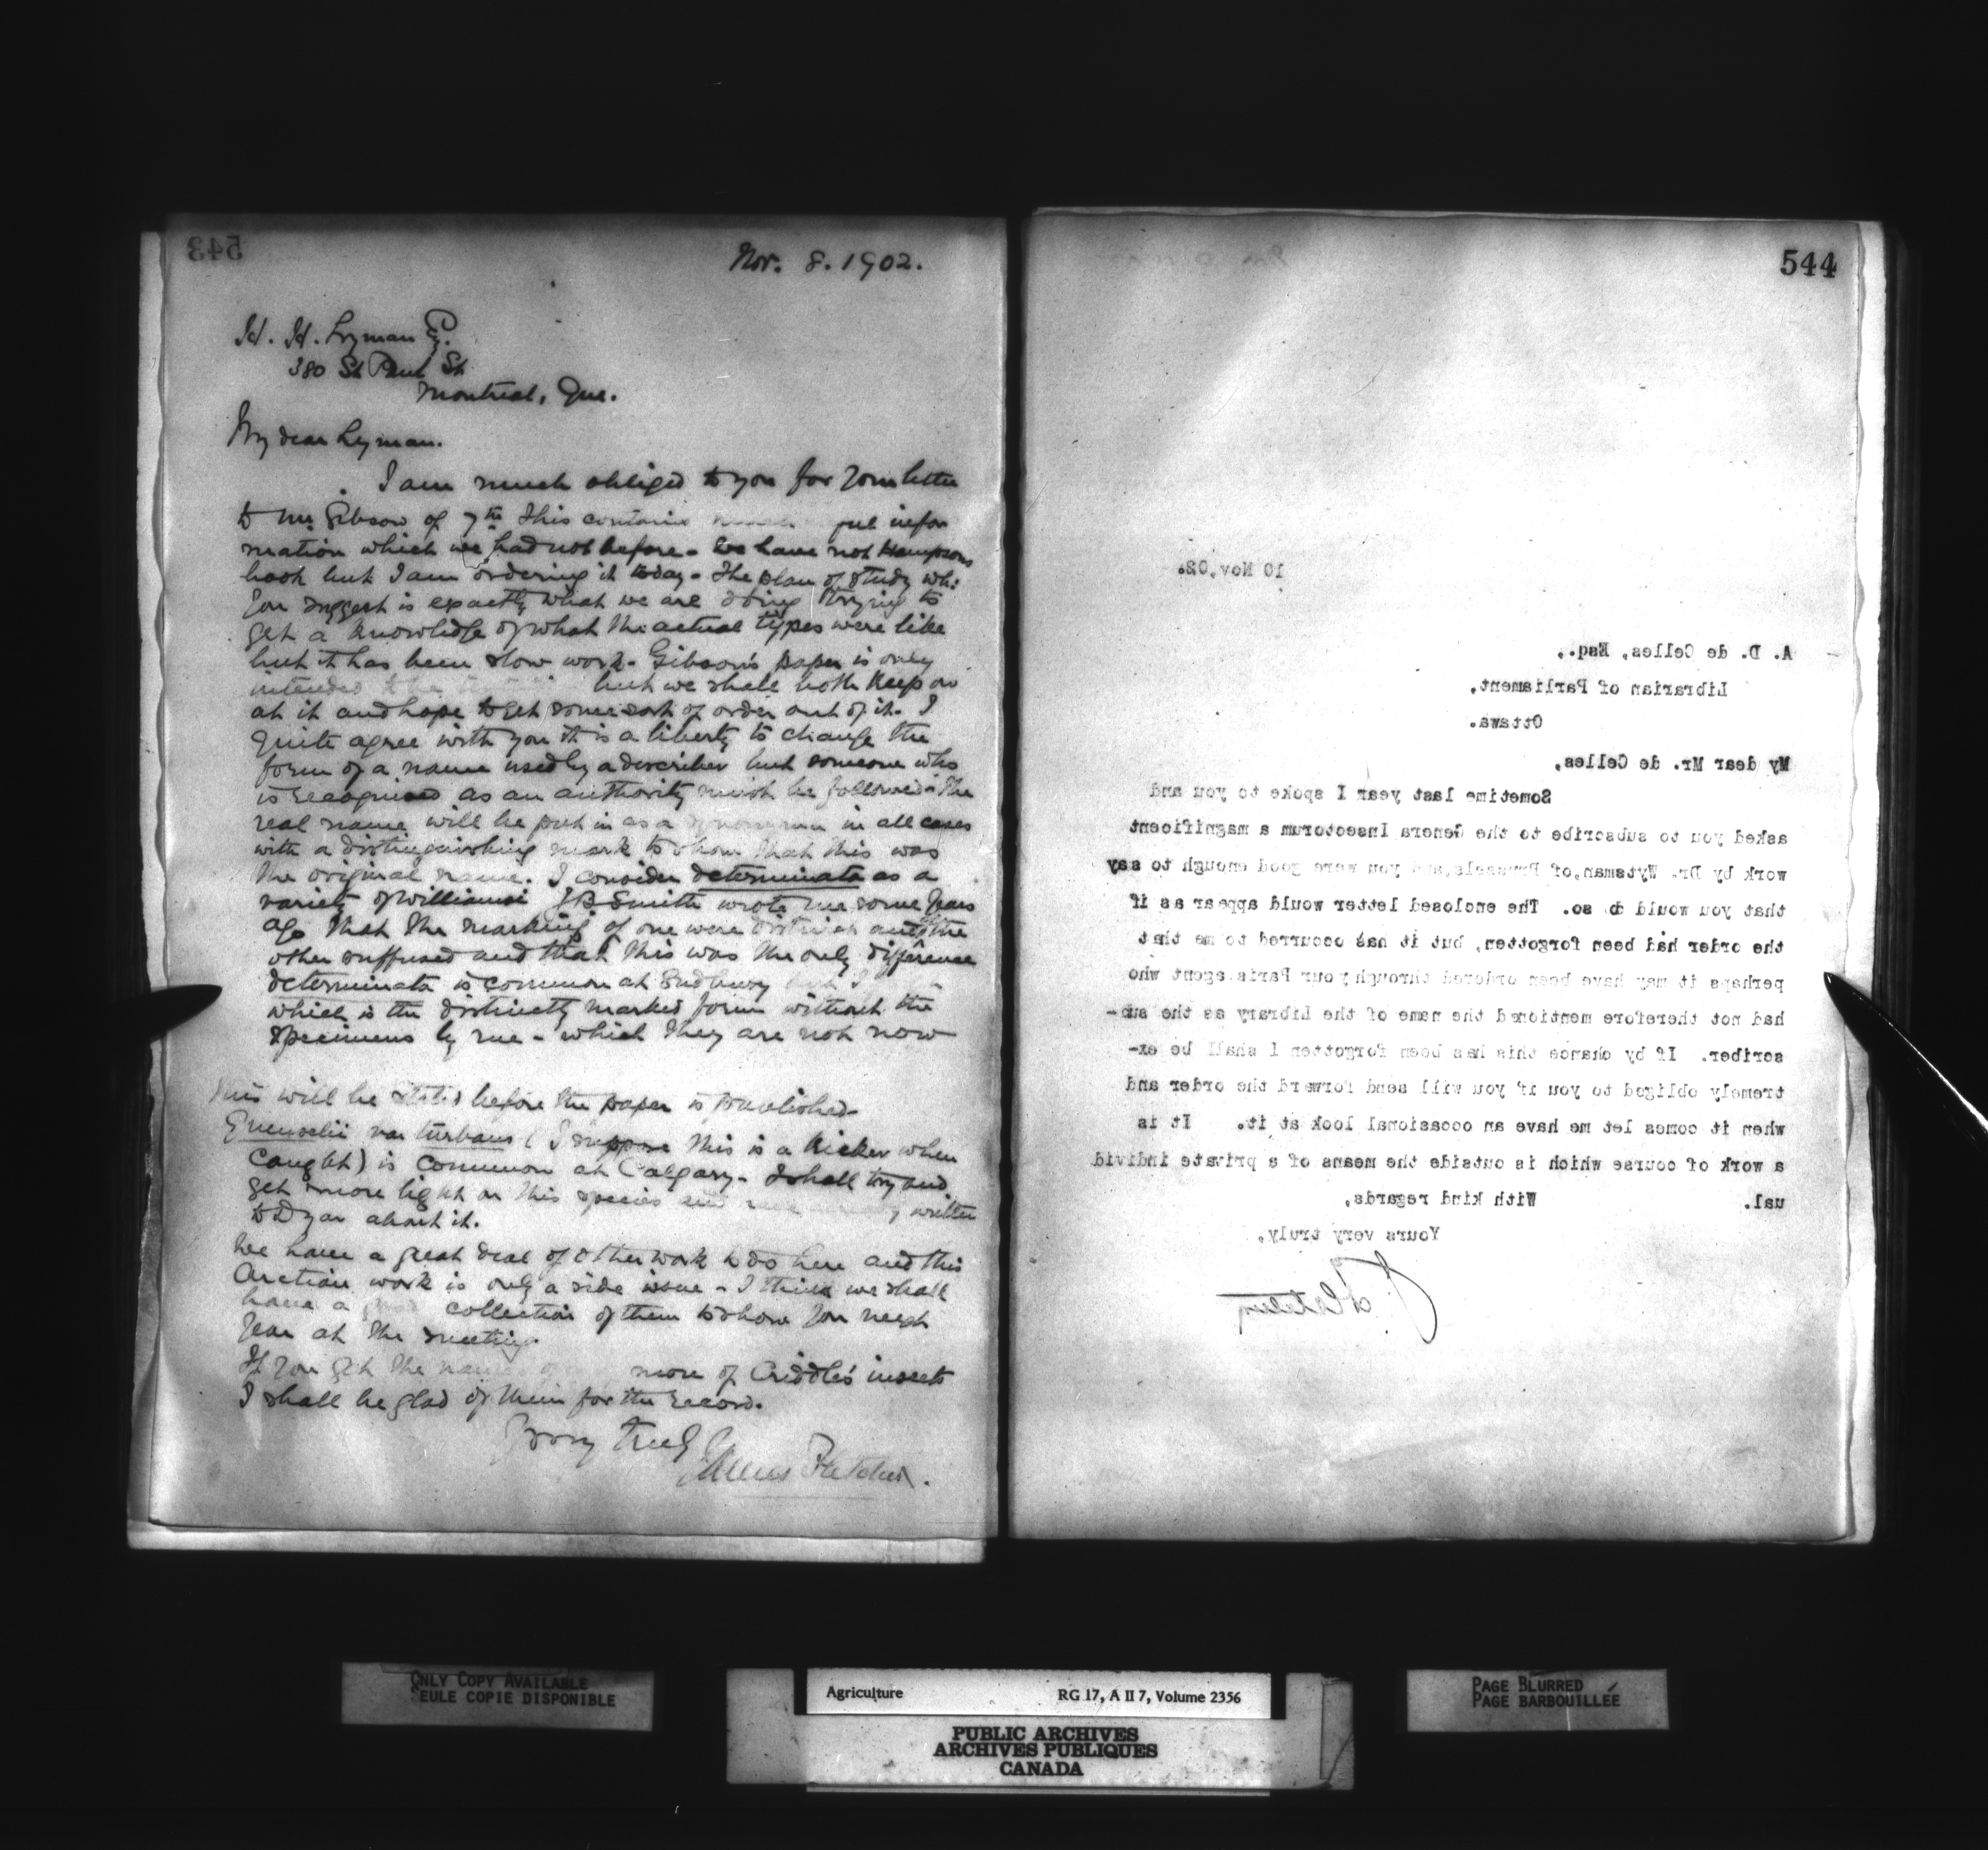 543
Nov. 8. 1902.
H. H. Lyman Esq.
380 St Paul St
Montreal, Que.
My dear Lyman.
I am much obliged to you for your letter
to Mr Gibson of 7th this contains infor
mation which we had not before - We have not Hampsons
book but I am ordering it today - The plan of study wh:
you suggest is exactly what we are doing trying to
get a knowledge of what the actual types were like
but it has been slow work - Gibson's paper is only
intended but we shall both keep on
at it and hope to get some sort of order out of it. I
quite agree with you it is a liberty to change the
form of a name used by a describer but someone who
is recognised as an authority must be followed - The
real name will be put in as a synonym in all cases
with a distinguishing mark to show that this was
the original name. I consider determinata as a
variety of Williamsi J B Smith wrote me some years
ago that the marking of one were distinct and the
other suffused and that this was the only difference
determinata is common at Sudbury
which is the distinctly marked form without the
specimens by me - which they are not now
this will be stated before the paper is published -
Quenselii var turbans (I suppose this is a kicker when
caught) is common at Calgary - I shall try and
get more light on this species and have already written
to Dyar about it.
We have a great deal of other work to do here and this
Arctian work is only a side issue - I think we shall
have a good collection of them to show you next
year at the meeting.
If you get the names of more of Criddle's insects
I shall be glad of them for the record.
Yours truly
James Fletcher.
544
10 Nov, 02.
A. D. de Celles, Esq.,
Librarian of Parliament,
Ottawa.
My dear Mr. de Celles,
Sometime last year I spoke to you and
asked you to subscribe to the Genera Insectorum a magnificent
work by Dr. Wytsman, of Brussels, and you were good enough to say
that you would do so. The enclosed letter would appear as if
the order had been forgotten, but it has occurred to me that
perhaps it may have been ordered through your Paris agent who
had not therefore mentioned the name of the Library as the sub-
scriber. If by chance this has been forgotten I shall be ex-
tremely obliged to you if you will send forward the order and
when it comes let me have an occasional look at it. It is
a work of course which is outside the means of a private individ
ual.
With kind regards,
Yours very truly,
J. Fletcher
ONLY COPY AVAILABLE
SEULE COPIE DISPONIBLE
Agriculture RG 17, A II 7, Volume 2356
PUBLIC ARCHIVES
ARCHIVES PUBLIQUES
CANADA
PAGE BLURRED
PAGE BARBOUILLÉE